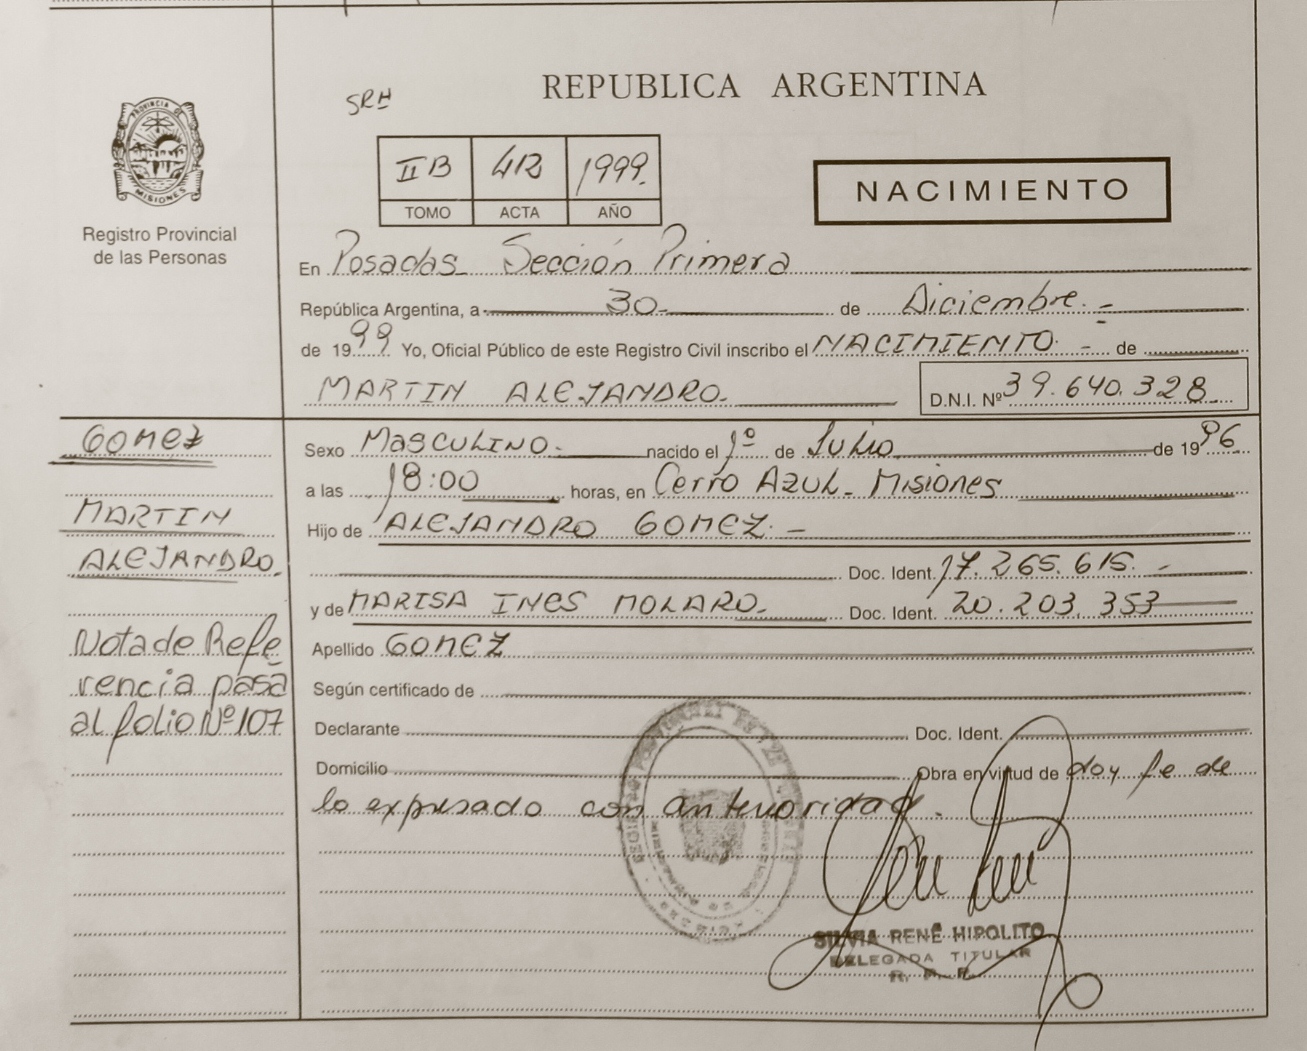 SRH
REPUBLICA ARGENTINA
PROVINCIA DE
MISIONES
Registro Provincial
de las Personas
II B 412 1999.
TOMO ACTA AÑO
NACIMIENTO
En Posadas Sección Primera
República Argentina, a 30 de Diciembre.-
de 1999 Yo, Oficial Público de este Registro Civil inscribo el NACIMIENTO - de
MARTIN ALEJANDRO. D.N.I. Nº 39.640.328
GOMEZ
MARTIN
ALEJANDRO.
Nota de Refe
rencia pasa
al folio Nº 107
Sexo MASCULINO. nacido el 1º de Julio de 1996
a las 18:00 horas, en Cerro AZUL- Misiones
Hijo de ALEJANDRO GOMEZ.-
Doc. Ident. 17.265.615.-
y de MARISA INES MOLARO. Doc. Ident. 20.203.353
Apellido GOMEZ
Según certificado de
Declarante Doc. Ident.
Domicilio Obra en virtud de doy fe de
lo expresado con anterioridad.
SILVIA RENÉ HIPOLITO
DELEGADA TITULAR
R. P. P.